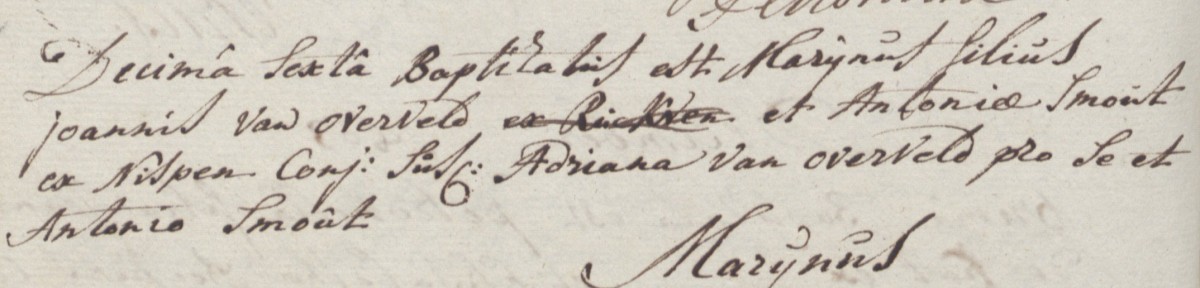 Decimâ Sextâ Baptizatus est Marÿnus filius
joannis van overveld et Antoniæ Smoût
ex Nispen Conj: Sûsc: Adriana van overveld pro se et
Antonio Smoût
Marÿnus